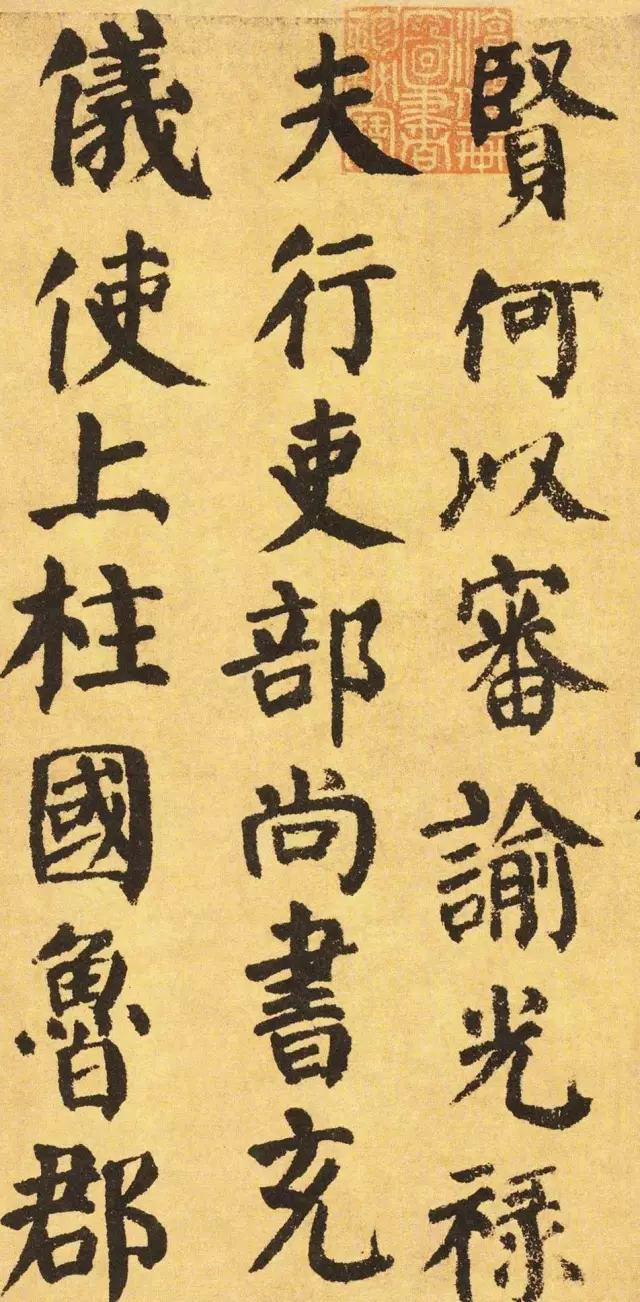 賢何以審諭光祿
夫行吏部尚書充
儀使上柱國魯郡